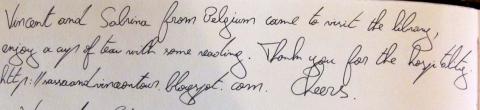 Vincent and Sabrina from Belgium came to visit the library,
enjoy a cup of tea with some reading. Thank you for the hospitality.
http://sassaandvinceontour.blogspot.com. Cheers.